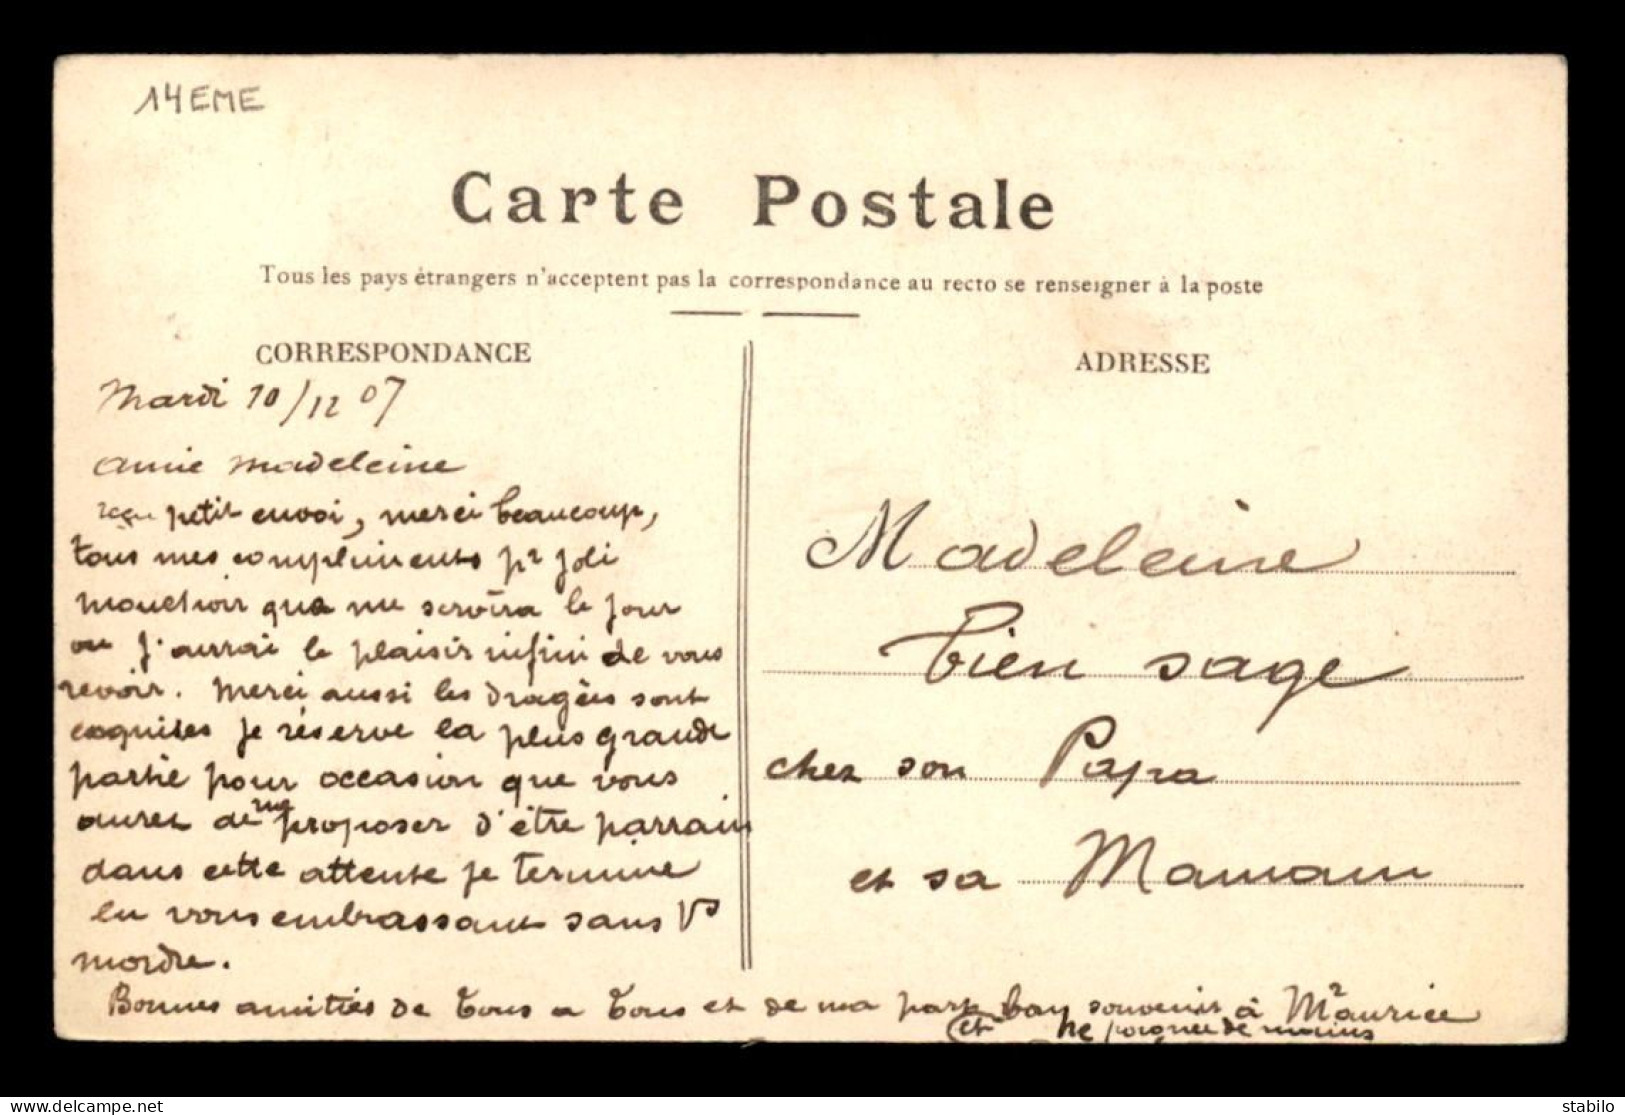 14EME
Carte Postale
Tous les pays étrangers n'acceptent pas la correspondance au recto se renseigner à la poste
CORRESPONDANCE
Mardi 10/12 07
amie madeleine
reçu petit envoi, merci beaucoup,
tous mes compliments pr joli
mouchoir qua me servira le jour
ou j'aurai le plaisir infini de vous
revoir. Merci aussi les dragées sont
exquises je réserve la plus grande
partie pour occasion que vous
aurez de me proposer d'être parrain
dans cette attente je termine
en vous embrassant sans Vs
mordre.
Bonnes amitiés de tous a tous et de ma part bon souvenir à Mr Maurice
et poignee de mains
ADRESSE
Madeleine
bien sage
chez son Papa
et sa Maman
stabilo